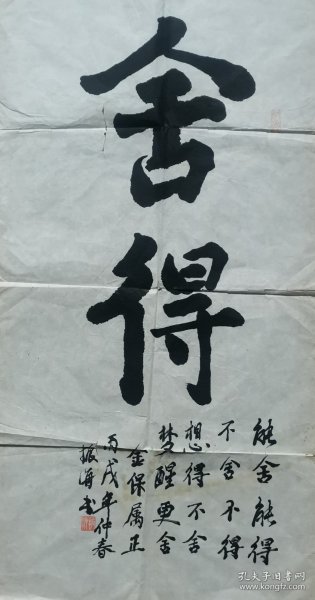 舍得
能舍能得
不舍不得
想得不舍
梦醒更舍
金保属正
丙戌年仲春
振海书
孔夫子旧书网
www.kongfz.com